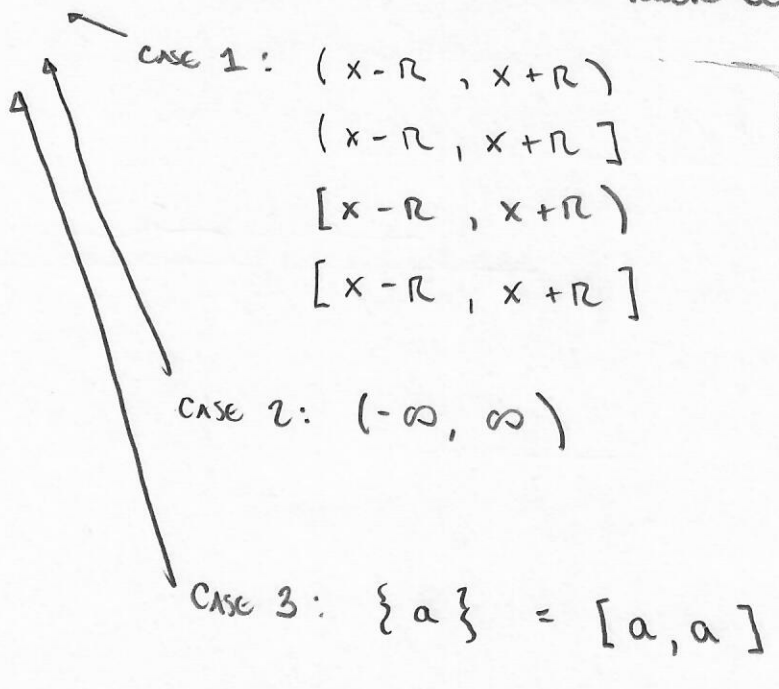 CASE 1: (x-R, x+R)
(x-R, x+R]
[x-R, x+R)
[x-R, x+R]
CASE 2: (-∞, ∞)
CASE 3: {a} = [a, a]